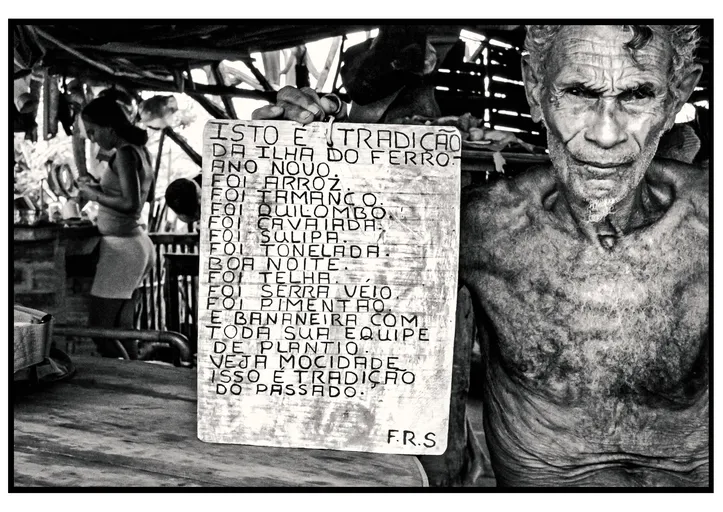 ISTO E TRADIÇÃO
DA ILHA DO FERRO-
ANO NOVO.
FOI ARROZ.
FOI TAMANCO.
FOI QUILOMBO.
FOI CAVAIADA.
FOI SULIPA.
FOI TONELADA.
BOA NOITE.
FOI TELHA.
FOI SERRA VÉIO.
FOI PIMENTÃO.
E BANANEIRA COM
TODA SUA EQUIPE
DE PLANTIO.
VEJA MOCIDADE
ISSO E TRADIÇÃO
DO PASSADO.
F.R.S